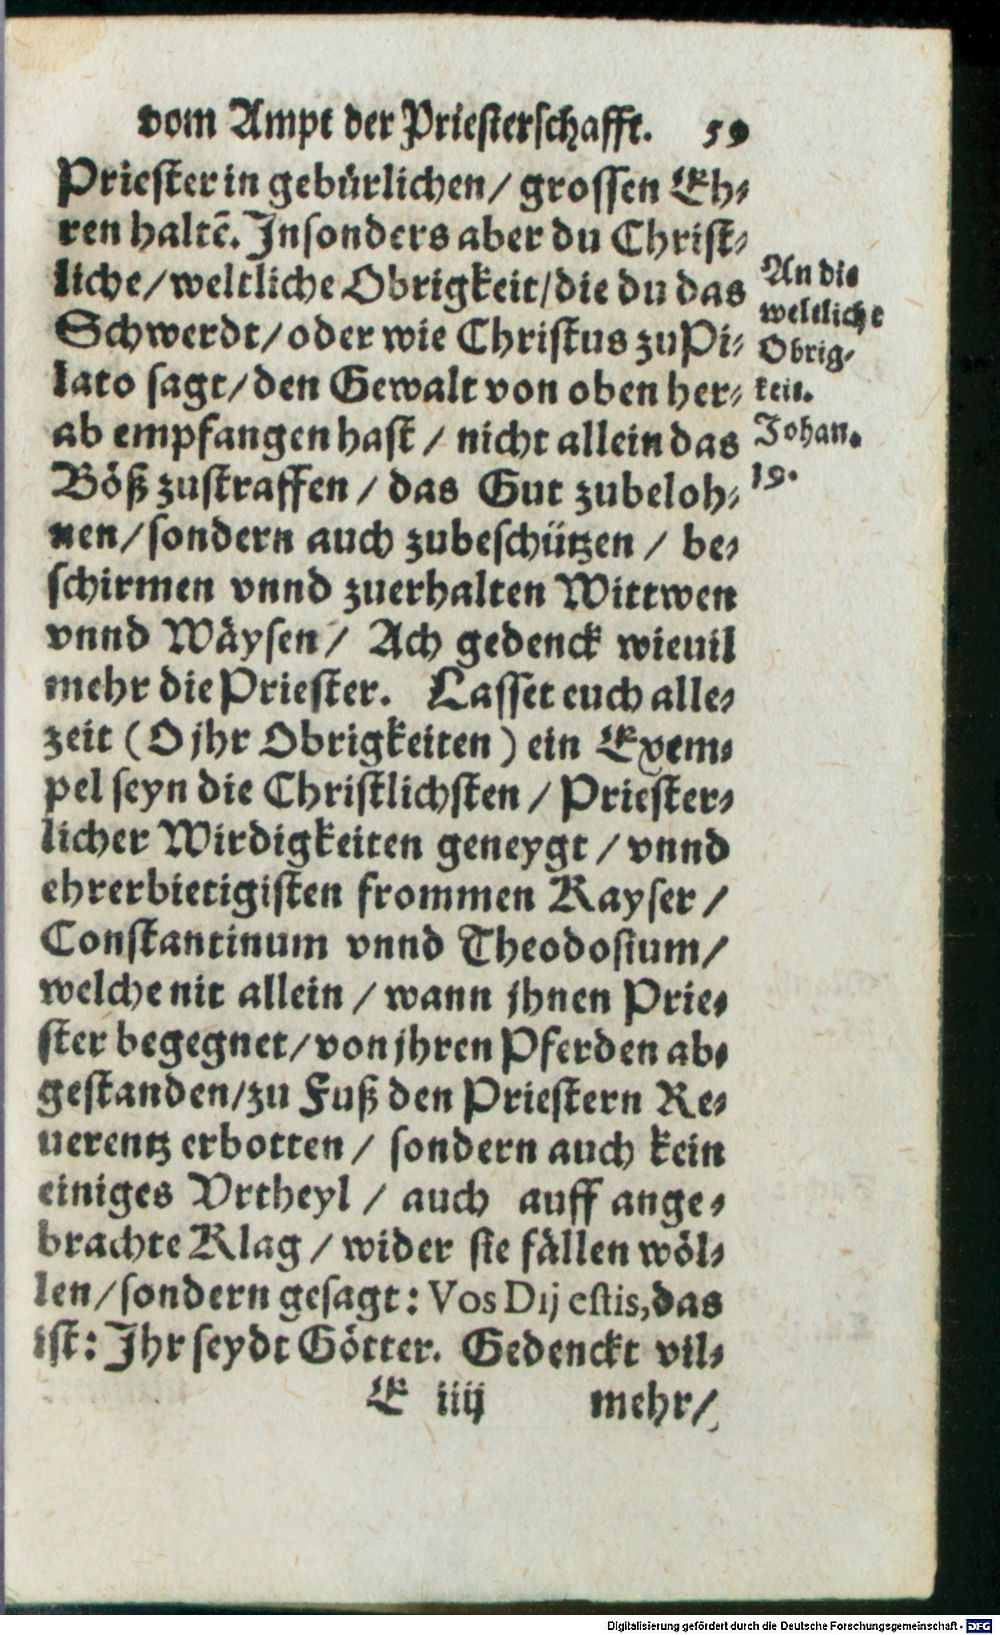 vom Ampt der Priesterschafft. 59
Priester in gebürlichen / grossen Eh⸗
ren haltē. Insonders aber du Christ⸗
liche / weltliche Obrigkeit / die du das
Schwerdt / oder wie Christus zu Pi⸗
lato sagt / den Gewalt von oben her⸗
ab empfangen hast / nicht allein das
Böß zustraffen / das Gut zubeloh⸗
nen / sondern auch zubeschützen / be⸗
schirmen vnnd zuerhalten Wittwen
vnnd Wäysen / Ach gedenck wieuil
mehr die Priester. Lasset euch alle⸗
zeit ( O jhr Obrigkeiten ) ein Exem⸗
pel seyn die Christlichsten / Priester⸗
licher Wirdigkeiten geneygt / vnnd
ehrerbietigisten frommen Kayser /
Constantinum vnnd Theodosium /
welche nit allein / wann jhnen Prie⸗
ster begegnet / von jhren Pferden ab⸗
gestanden / zu Fuß den Priestern Re⸗
uerentz erbotten / sondern auch kein
einiges Vrtheyl / auch auff ange⸗
brachte Klag / wider sie fällen wöl⸗
len / sondern gesagt : Vos Dij estis, das
ist : Ihr seydt Götter. Gedenckt vil⸗
E iiij mehr /
An die
weltliche
Obrig⸗
keit.
Johan.
19.
Digitalisierung gefördert durch die Deutsche Forschungsgemeinschaft - DFG